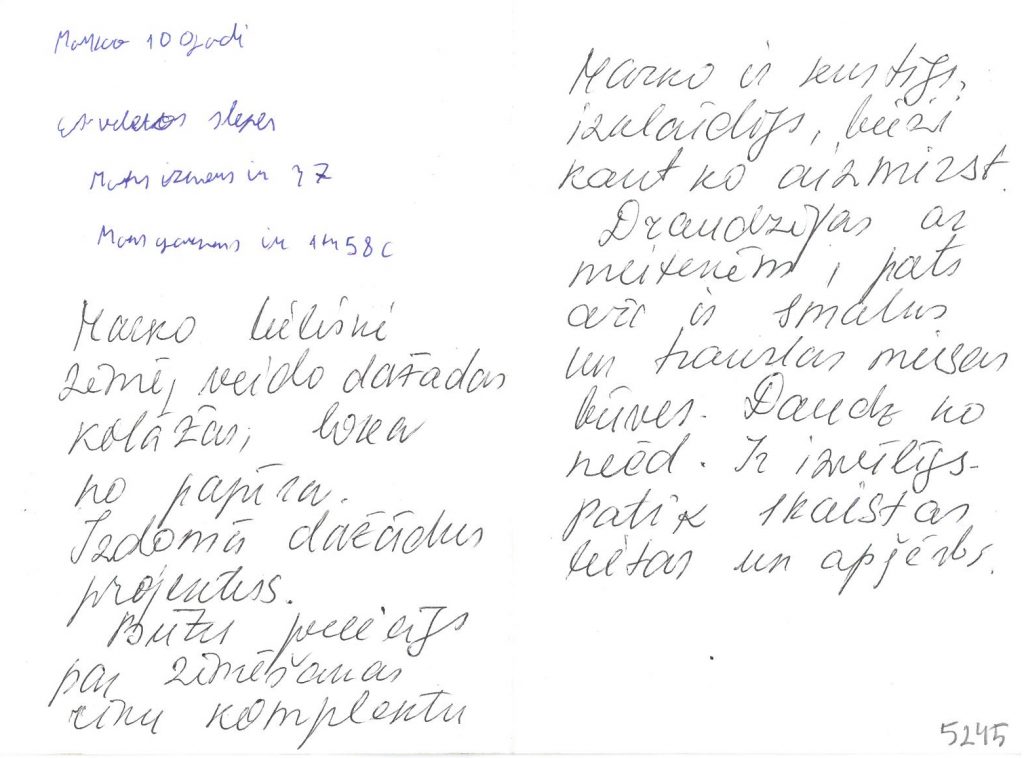 Marko 10 Gadi
es vēlētos slepes
Mans izmers ir 37
Mans garums ir 1m 58c
Marko lieliski
zīmē, veido dažādas
kolāžas, loka
no papīra.
Izdomā dažādus
projektus.
Būtu priecīgs
par zīmēšanas
rīku komplektu
Marko ir kustīgs,
izklaidīgs, bieži
kaut ko aizmirst.
Draudzējas ar
meitenēm, pats
arī ir smalkas
un trauslas miesas
būves. Daudz ko
neēd. Ir izvēlīgs-
patīk skaistas
lietas un apģērbs.
5245